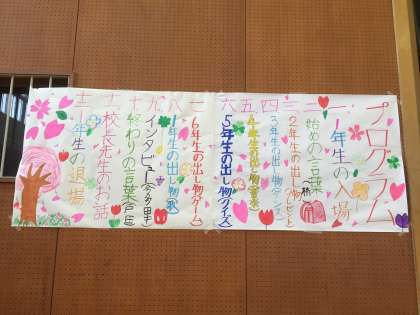 プログラム
一 1年生の入場
二 始めの言葉
三 2年生の出し物(プレゼント)
四 3年生の出し物(クイズ)
五 4年生の出し物(音楽)
六 5年生の出し物(クイズ)
七 6年生の出し物(ゲーム)
八 1年生の出し物(歌)
九 インタビュー
十 終わりの言葉
十一 校長先生のお話
十二 1年生の退場